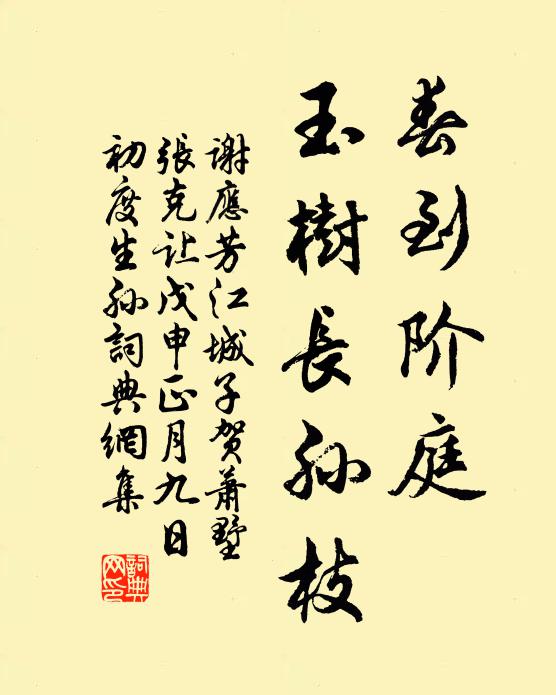 春到阶庭
玉樹長孙枝
謝應芳江城子贺蕭墅
張克让戊申正月九日
初度生孙詞典網集
詞典
网印